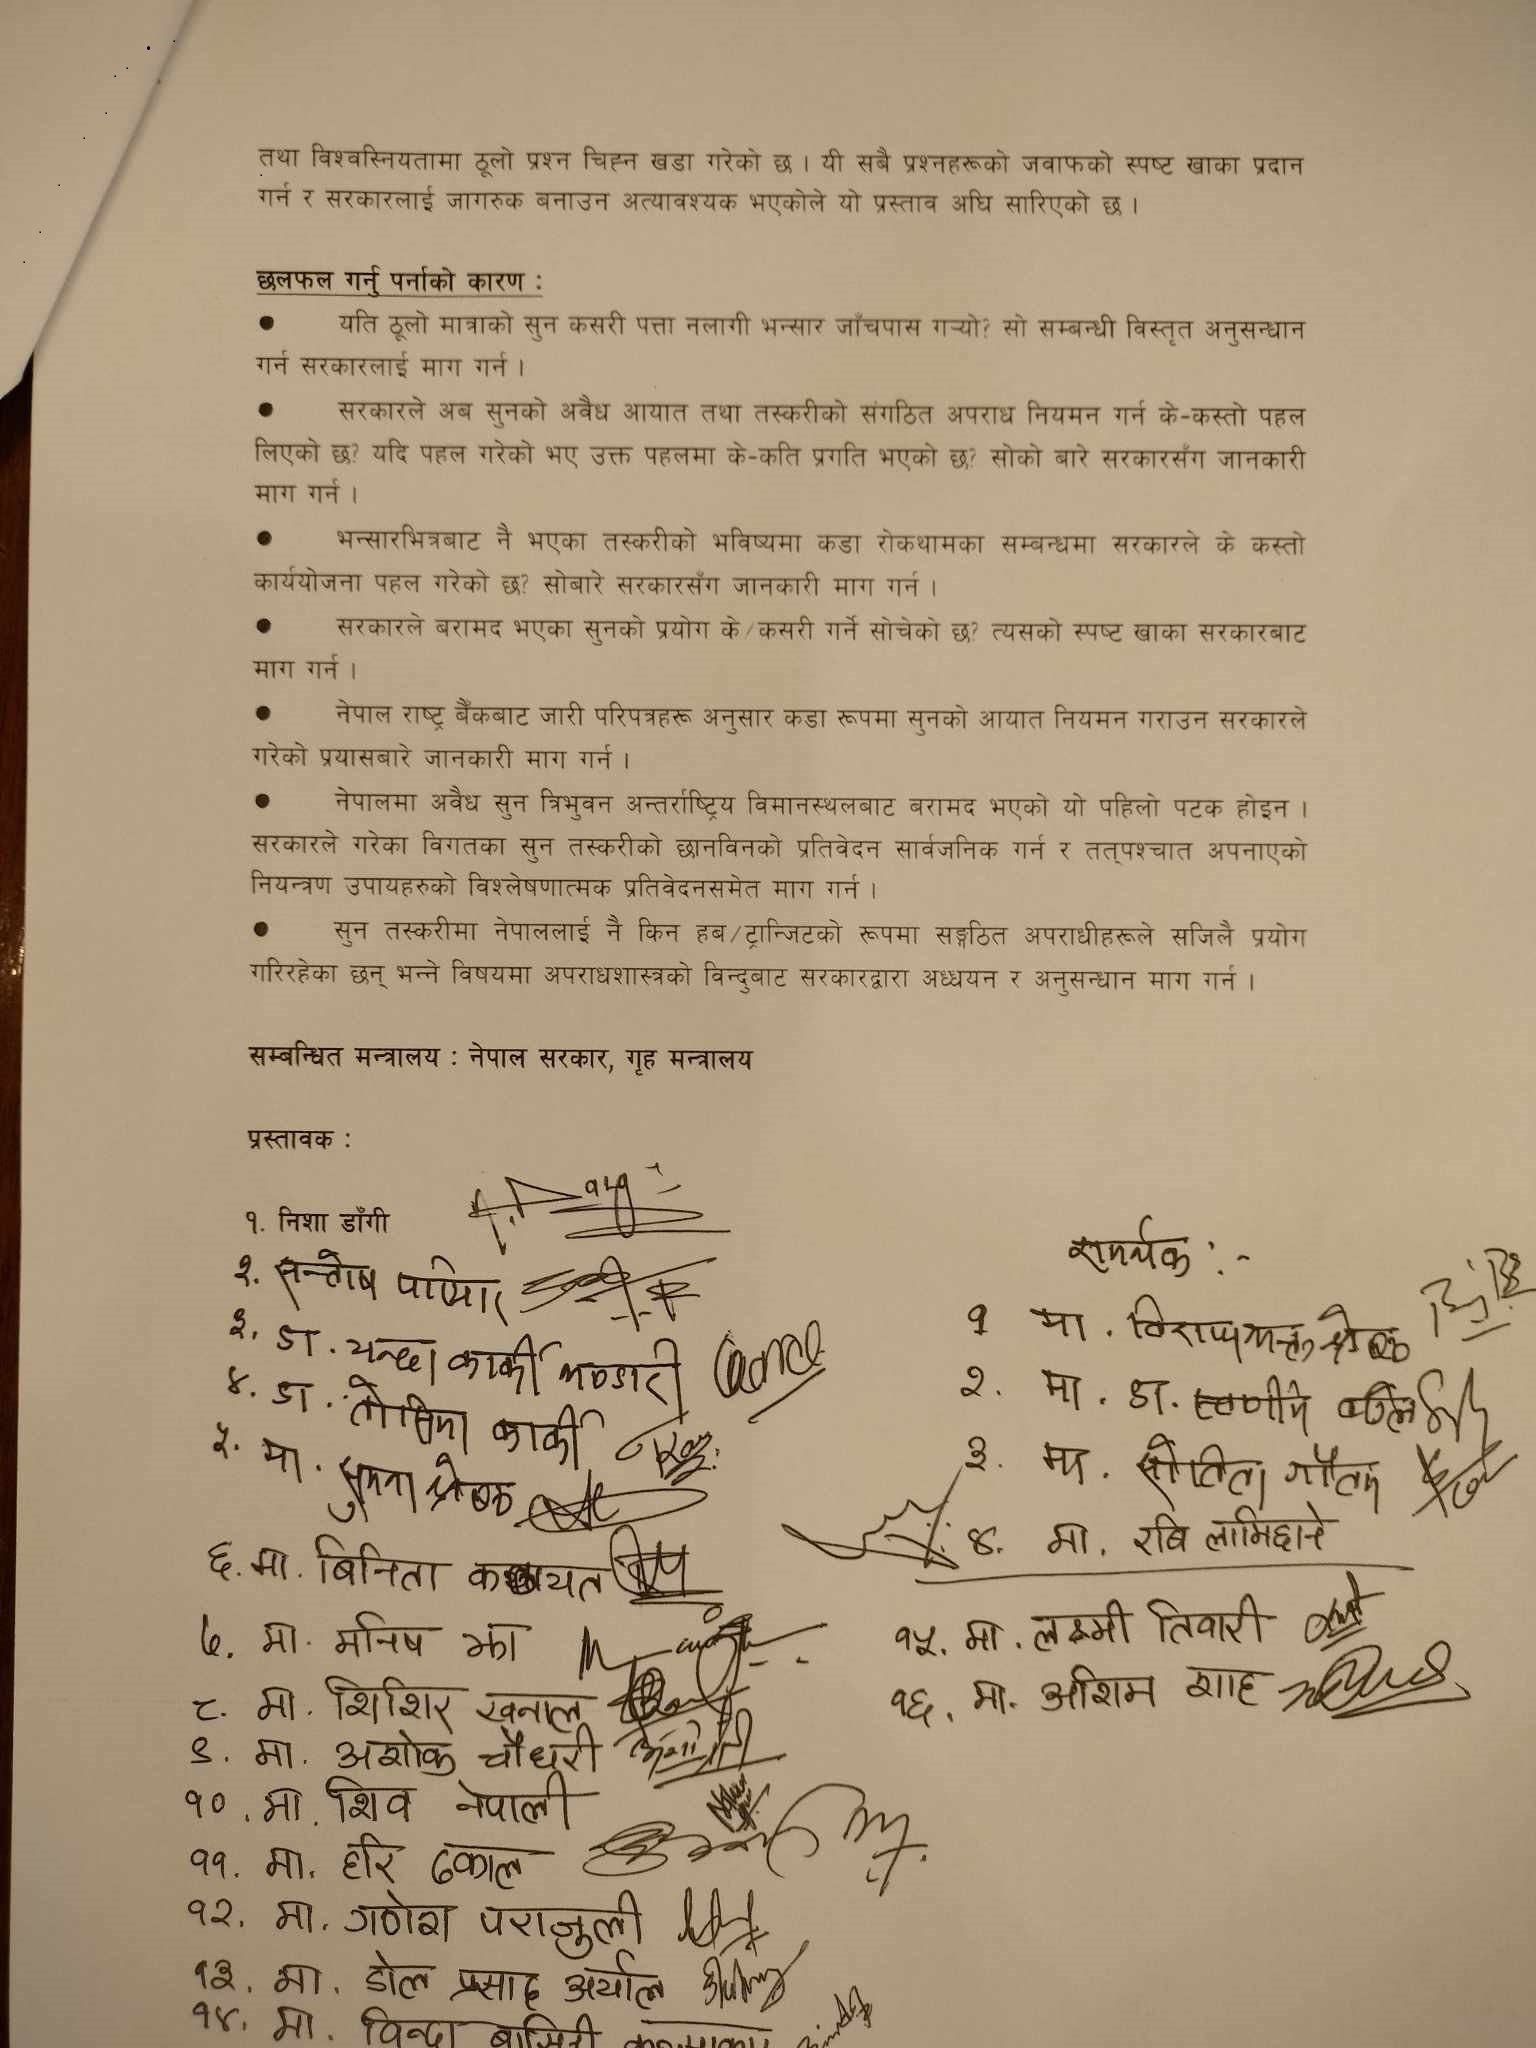 तथा विश्वस्नियतामा ठूलो प्रश्न चिह्न खडा गरेको छ । यी सबै प्रश्नहरूको जवाफको स्पष्ट खाका प्रदान
गर्न र सरकारलाई जागरुक बनाउन अत्यावश्यक भएकोले यो प्रस्ताव अघि सारिएको छ ।
छलफल गर्नु पर्नाको कारण :
● यति ठूलो मात्राको सुन कसरी पत्ता नलागी भन्सार जाँचपास गर्‍यो? सो सम्बन्धी विस्तृत अनुसन्धान
गर्न सरकारलाई माग गर्न ।
● सरकारले अब सुनको अवैध आयात तथा तस्करीको संगठित अपराध नियमन गर्न के-कस्तो पहल
लिएको छ? यदि पहल गरेको भए उक्त पहलमा के-कति प्रगति भएको छ? सोको बारे सरकारसँग जानकारी
माग गर्न ।
● भन्सारभित्रबाट नै भएका तस्करीको भविष्यमा कडा रोकथामका सम्बन्धमा सरकारले के कस्तो
कार्ययोजना पहल गरेको छ? सोबारे सरकारसँग जानकारी माग गर्न ।
● सरकारले बरामद भएका सुनको प्रयोग के/कसरी गर्ने सोचेको छ? त्यसको स्पष्ट खाका सरकारबाट
माग गर्न ।
● नेपाल राष्ट्र बैँकबाट जारी परिपत्रहरू अनुसार कडा रूपमा सुनको आयात नियमन गराउन सरकारले
गरेको प्रयासबारे जानकारी माग गर्न ।
● नेपालमा अवैध सुन त्रिभुवन अन्तर्राष्ट्रिय विमानस्थलबाट बरामद भएको यो पहिलो पटक होइन ।
सरकारले गरेका विगतका सुन तस्करीको छानविनको प्रतिवेदन सार्वजनिक गर्न र तत्‌पश्चात अपनाएको
नियन्त्रण उपायहरुको विश्लेषणात्मक प्रतिवेदनसमेत माग गर्न ।
● सुन तस्करीमा नेपाललाई नै किन हब/ट्रान्जिटको रूपमा सङ्गठित अपराधीहरूले सजिलै प्रयोग
गरिरहेका छन् भन्ने विषयमा अपराधशास्त्रको विन्दुबाट सरकारद्वारा अध्धयन र अनुसन्धान माग गर्न ।
सम्बन्धित मन्त्रालय : नेपाल सरकार, गृह मन्त्रालय
प्रस्तावक :
१. निशा डाँगी
२. सन्तोष परियार
३. डा. चन्दा कार्की भण्डारी
४. डा. तोसिमा कार्की
५. मा. सुमना श्रेष्ठ
६. मा. बिनिता कठायत
७. मा. मनिष झा
८. मा. शिशिर खनाल
९. मा. अशोक चौधरी
१०. मा. शिव नेपाली
११. मा. हरि ढकाल
१२. मा. गणेश पराजुली
१३. मा. डोल प्रसाद अर्याल
१४. मा. विन्दा
समर्थक :-
१ मा. विराजभक्त श्रेष्ठ
२. मा. डा.
३. मा. सोविता गौतम
४. मा. रबि लामिछाने
१५. मा. लक्ष्मी तिवारी
१६. मा. अशिम शाह